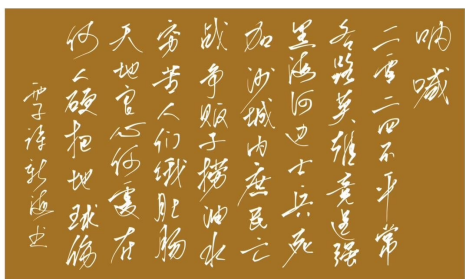 呐喊
二零二四不平常
各路英雄竞逞强
黑海河边士兵死
加沙城内庶民亡
战争贩子捞油水
穷苦人们饿肚肠
天地宫心何处在
何人硬把地球伤
书